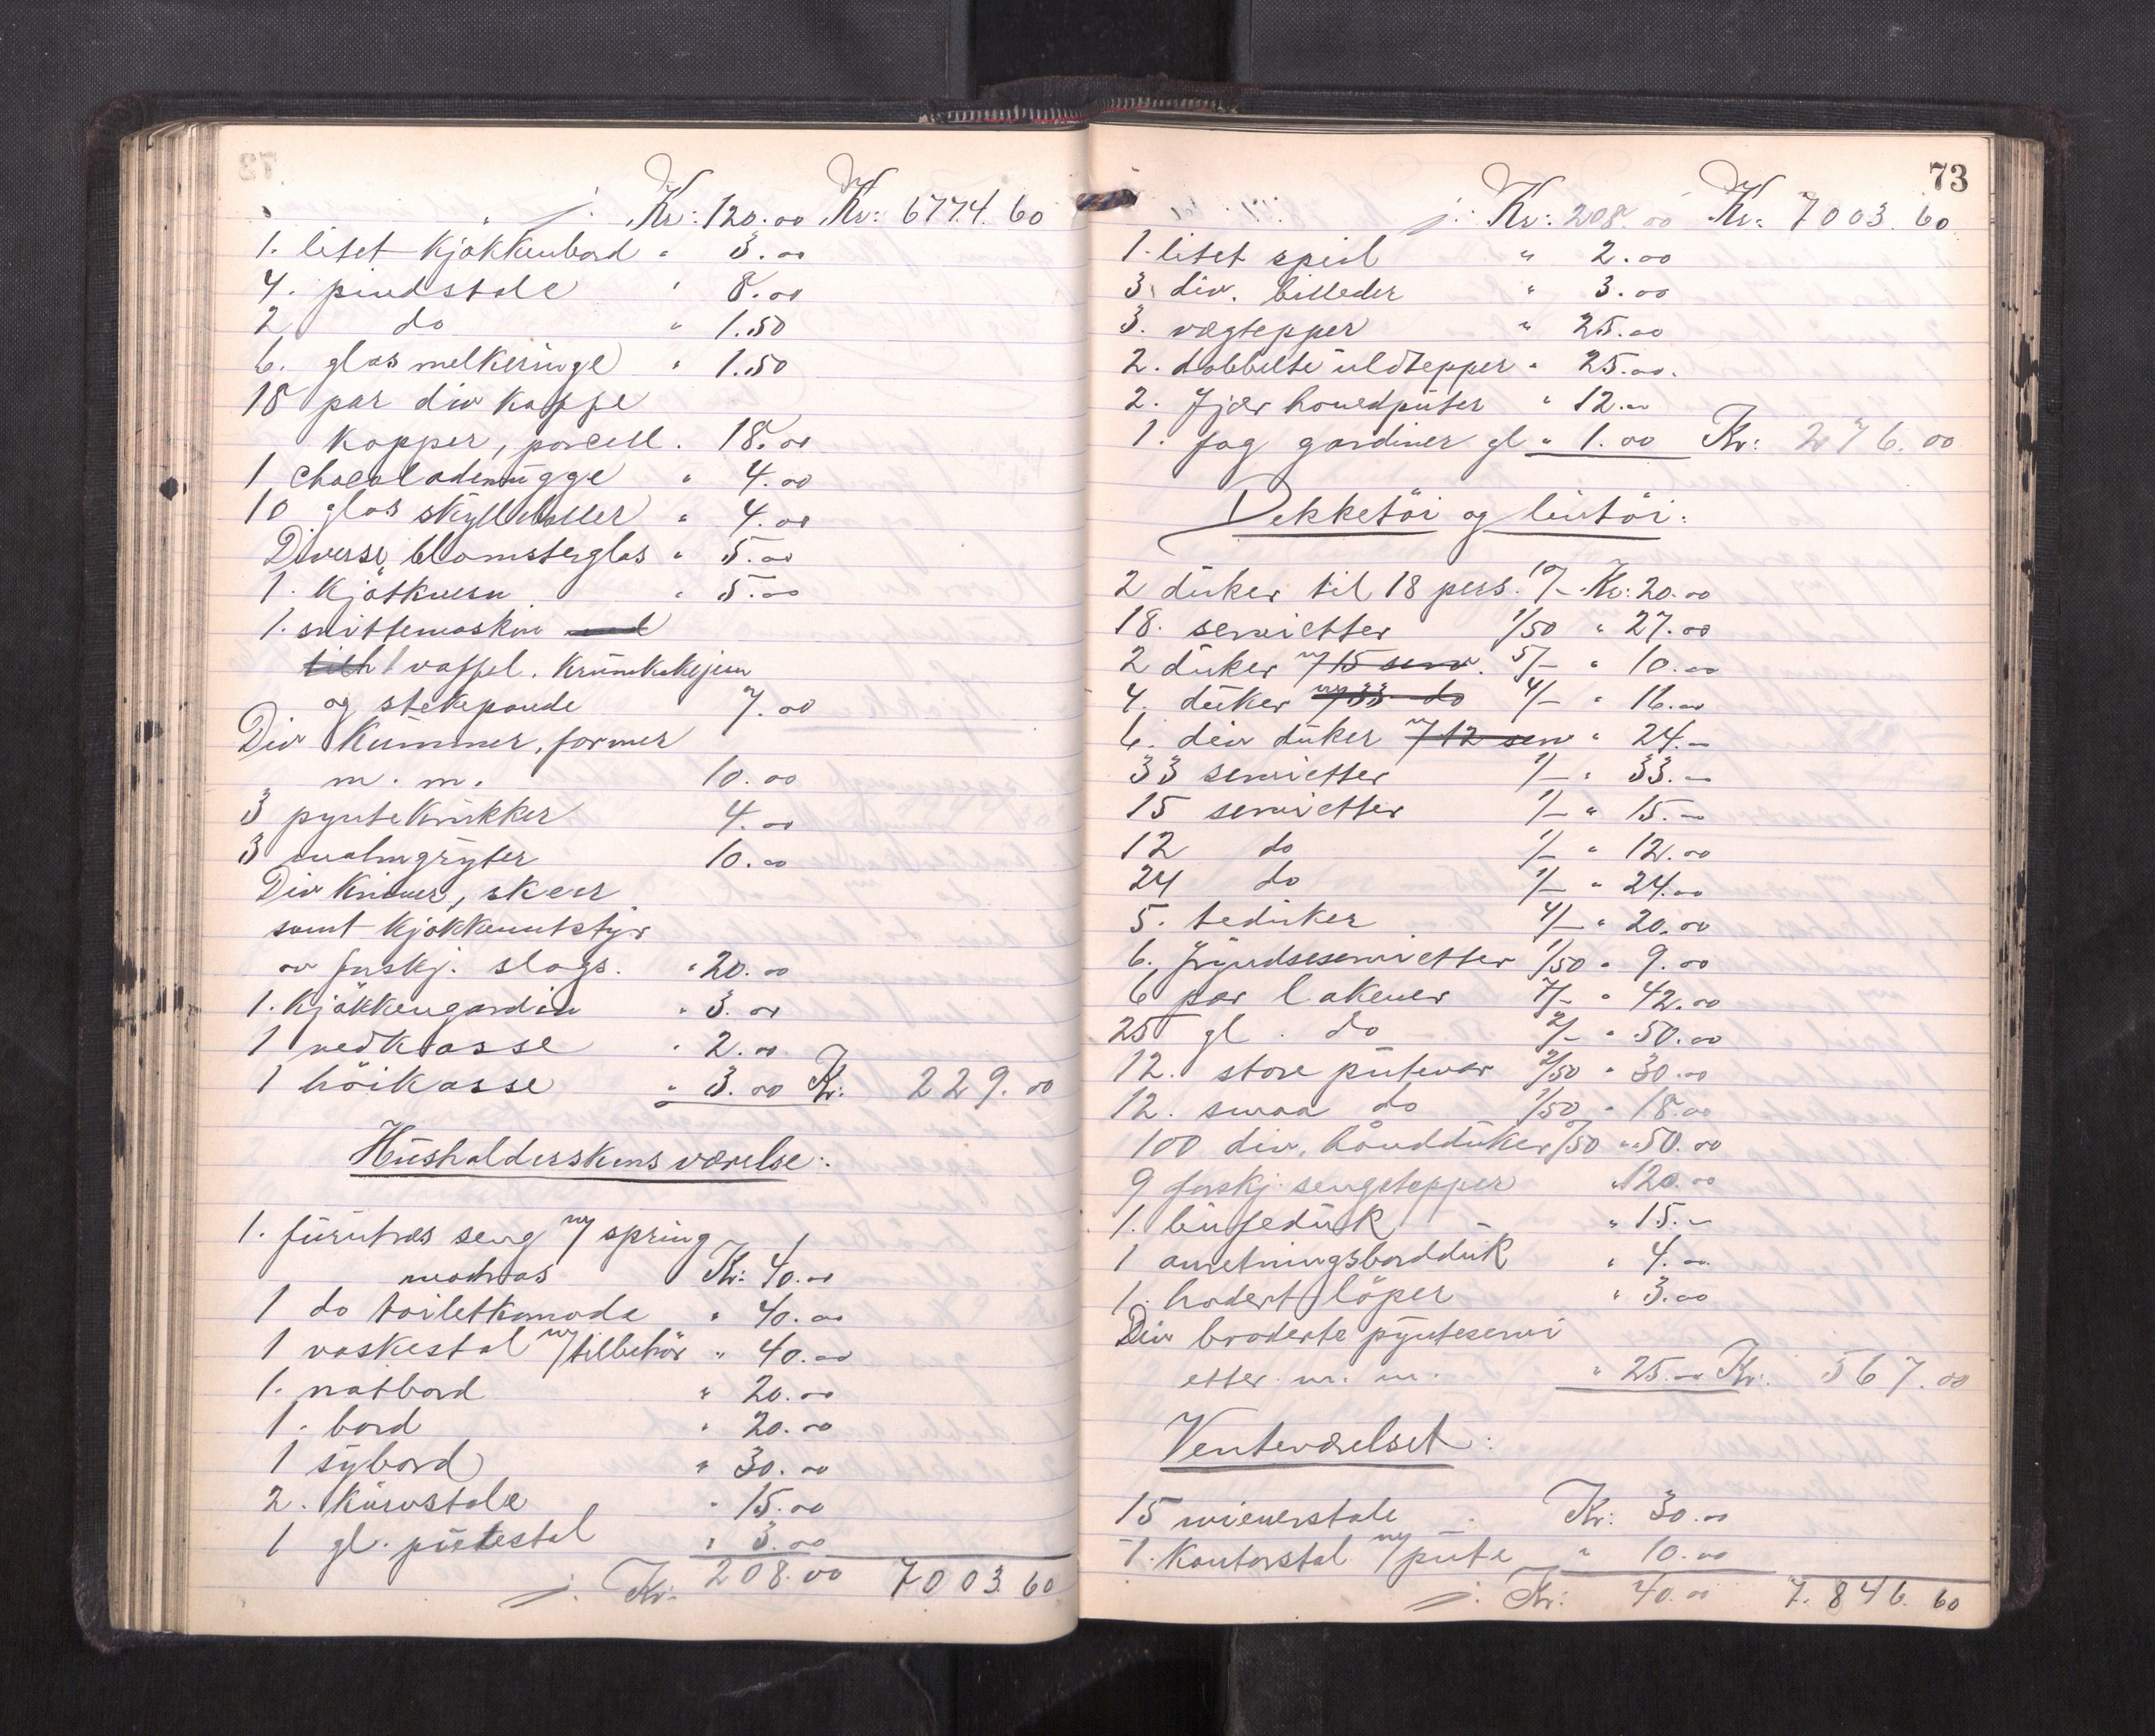 j. Kr: 120.00 Kr: 6774.60
1. litet kjøkkenbord " 3.00
4. pindstole " 8.00
2 do " 1.50
6. glas melkeringe " 1.50
18 par div kaffe
kopper, porcell. 18.00
1 Chocolademugge " 4.00
10 glas skylleboller " 4.00
Diverse blomsterglas " 5.00
1. Kjøtkvern " 5.00
1. snittemaskin med
1 vaffel. Krumkakejern
og stekepande 7.00
Div Kummer, former
m. m. 10.00
3 pyntekrukker 4.00
3 malmgryter 10.00
Div Kniver, skeer
samt kjøkkenutstyr
av forskj. slags. " 20.00
1. Kjøkkengardin " 3.00
1 vedkasse " 2.00
1 höikasse " 3.00 Kr: 229.00
Husholderskens værelse:
1. furutræs seng m/ spring
madras Kr: 40.00
1 do toiletkomode " 40.00
1 vaskestol m/tilbehör " 40.00
1. natbord " 20.00
1. bord " 20.00
1 sybord " 30.00
2. Kurvstole " 15.00
1 gl. putestol " 3.00
j. Kr: 208.00 7003.60
73
j. Kr: 208.00 Kr: 7003.60
1. litet speil " 2.00
3 div. billeder " 3.00
3. vægtepper " 25.00
2. dobbelte uldtepper " 25.00.
2. Fjær hovedputer " 12.00
1. fag gardiner gl " 1.00 Kr: 276.00
Dekketöi og lintöi:
2 duker til 18 pers. 10/- Kr: 20.00
18. servietter 1/50 " 27.00
2 duker m/15 serv. 5/- " 10.00
4. duker m/33 do 4/- " 16.00
6. div duker m/12 serv " 24.-
33 servietter 1/- " 33.-
15 servietter 1/- " 15.-
12 do 1/- " 12.00
24 do 1/- " 24.00
5. teduker 4/- " 20.00
6. fryndseservietter 1/50 " 9.00
6 par lakener 7/- " 42.00
25 gl. do 2/- " 50.00
12. store putevar 2/50 " 30.00
12. smaa do 1/50 " 18.00
100 div. håndduker /50 " 50.00
9 forskj. sengetepper " 120.00
1. buffeduk " 15.-
1 anretningsbordduk " 4.00
1. brodert löper " 3.00
Div broderte pynteservi
etter m. m. " 25.00 Kr. 567.00
Venteværelset:
15 wienerstole Kr: 30.00
1. Kontorstol m/pute " 10.00
j. Kr: 40.00 7.846.60